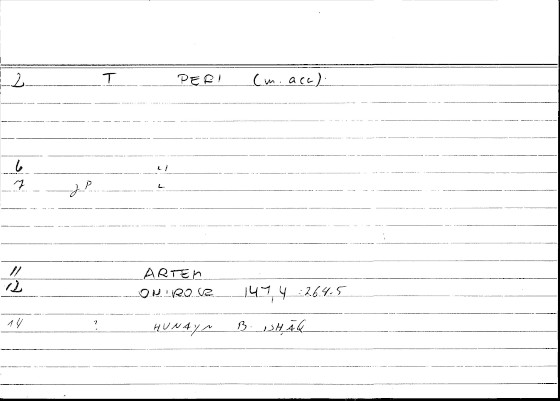 2 T PERI (m. acc).
6 "
7 gP "
11 ARTEM
12 ONIROCR 147,4 :264.5
14 ? HUNAYN B. ISḤĀḲ